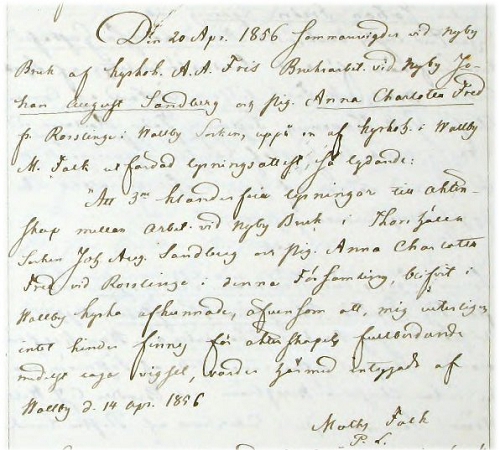 Den 20 Apr. 1856 sammanvigdes vid Nyby
Bruk af kyrkoh. A. A. Fris Bruksarbet. vid Nyby Jo-
han August Sandberg och pig. Anna Charlotta Fred
fr. Rosslinge i Wallby Socken, uppå en af kyrkoh. i Wallby
M. Falk utfärdad lysningsattest, så lydande:
"Att 3ne hinderfria lysningar till äkten-
skap mellan Arbet. vid Nyby Bruk i Thorshälla
Socken Joh. Aug. Sandberg och pig. Anna Charlotta
Fred vid Rosslinge i denna Församling, blifvit i
Wallby kyrka afkunnade, äfvensom att, mig veterligen
intet hinder finnes för äktenskapets fullbordande
medelst vigsel, varder härmed intygadt af
Wallby d. 14 Apr. 1856
Maths Falk
P. L.